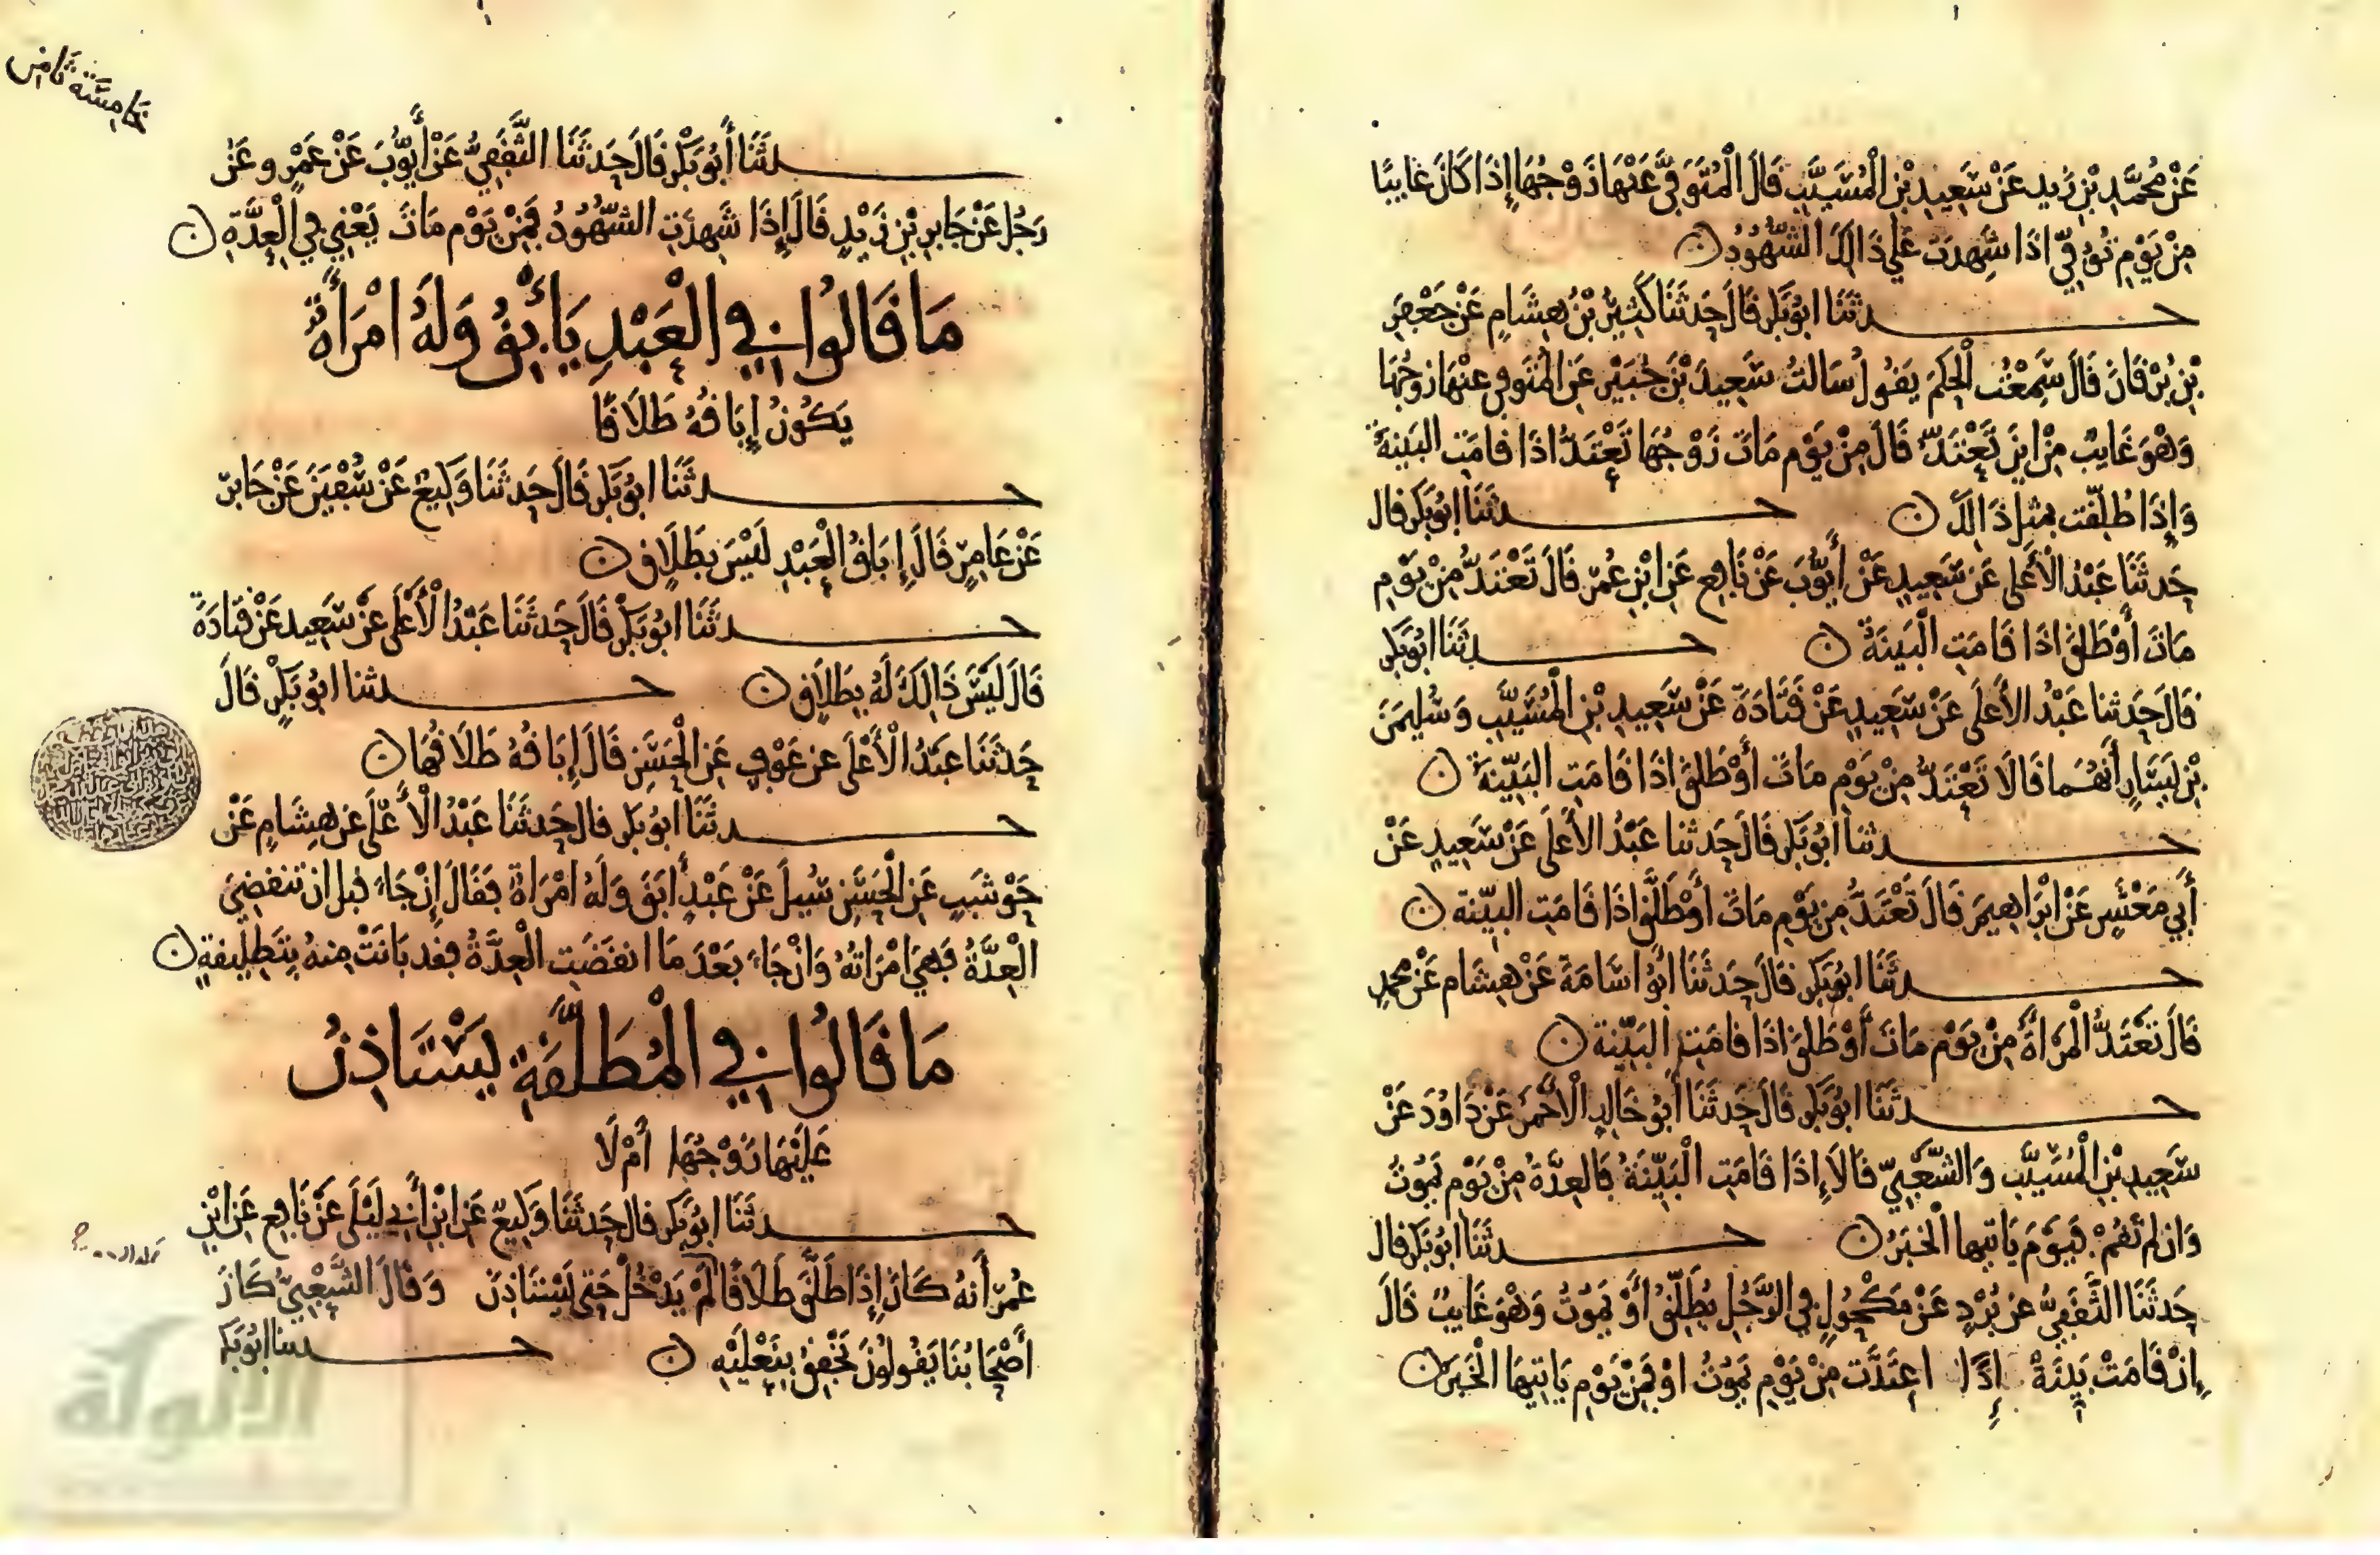 عَنْ مُحَمَّدِ بْنِ زَيد عَنْ سَعِيدِ بْنِ الْمُسَيَّبِ قَالَ الْمُتَوَفَّى عَنْهَا زَوْجُهَا إِذَا كَانَ غَايِبًا
مِنْ يَوْمِ تُوُفِّي اذَا شَهِدَتْ عَلَى ذَالِكَ الشُّهُودُ ن
حدثَنَا ابُو بَكْر قَالَ حَدثَنَا كَثِيرُ بْنُ هِشَامٍ عَنْ جَعْفَرِ
بْنِ بُرْقَانَ قَالَ سَمِعْتُ الْحَكَمَ يَقُولُ سَالتُ سَعِيدَ بْنَ جُبَيْرٍ عَنِ الْمُتَوفى عنْهَا زوجُهَا
وَهْوَ غَايِبٌ مِنْ ايْنَ تَعْتَدُّ قَالَ مِنْ يَوْمِ مَاتَ زَوْجُهَا تَعْتَدُّ اذَا قَامَتِ البَينَةُ
وَإِذَا طُلِّقَت فمثل ذَالِكَ ن حدثَنَا ابُو بَكر قال
حَدثَنَا عَبْدُ الْأَعْلَى عَنْ سَعِيدٍ عَنْ أَيُّوبَ عَنْ نَافِعٍ عَنِ ابْنِ عُمَرَ قَالَ تَعْتَدُّ مِنْ يَوْمِ
مَاتَ أَوْ طَلقَ اذَا قَامَتِ الْبَينَةُ ن حدثَنَا ابُو بَكر
قَالَ حَدثنا عَبْدُ الأَعْلَى عَنْ سَعِيدٍ عَنْ قَتَادَةَ عَنْ سَعِيدِ بْنِ الْمُسَيَّبِ وَسُلَيمَنَ
بْنِ يَسَارٍ أَنهُمَا قَالَا تَعْتَدُّ مِنْ يَوْمِ مَاتَ أَوْ طَلقَ اذَا قَامَتِ البَيِّنَةُ ن
حدثنَا ابُو بَكر قَالَ حَدثنا عَبْدُ الأَعْلَى عَنْ سَعِيدٍ عَنْ
أَبِي مَعْشَرٍ عَنْ ابْرَاهِيمَ قَالَ تَعْتَدُّ مِن يَوْمِ مَاتَ أَوْ طَلَّقَ اذَا قَامَتِ البيِّنة ن
حدثَنَا ابُو بَكر قالَ حَدثَنَا ابُو اسَامَةَ عَنْ هِشَام عَنْ محمدٍ
قَالَ تَعْتَدُّ الْمَرْأَةُ مِنْ يَوْم مَاتَ أَوْ طَلقَ اذَا قامَتِ البَيِّنة ن
حدثَنَا ابُو بَكر قَالَ حَدثَنَا أَبُو خَالِدٍ الْأَحْمَرُ عَنْ دَاوُدَ عَنْ
سَعِيدِ بْنِ الْمُسَيَّبِ وَالشَّعْبِيِّ قَالَا إِذَا قَامَتِ الْبَيِّنَةُ فَالعِدَّةُ مِنْ يَوْمِ يَمُوتُ
وَان لم تَقُمْ فَيَوْمَ يَاتيها الْخَبَرُ ن حدثَنَا ابُو بَكر قال
حَدثَنَا الثَّقَفِيُّ عَن بُرْدٍ عَنْ مَكْحُولٍ في الرَّجُلِ يُطَلِّقُ أَوْ يَمُوتُ وَهْوَ غَايِبٌ قَالَ
إِنْ قَامَتْ بَيِّنَةٌ إِذًا اعتَدَّت مِنْ يَوْمِ يَمُوتُ اوْ فَمِنْ يَوْمِ يَاتِيهَا الْخَبَرُ ن
خامسة ثامن
حدثَنَا أَبُو بَكْر قَالَ حَدثَنَا الثَّقَفِيُّ عَنْ أَيُّوبَ عَنْ عَمْرٍو عَنْ
رَجُل عَنْ جَابِرِ بْنِ زَيْدٍ قَالَ إِذَا شَهِدَتِ الشُّهُودُ فَمِنْ يَوْم مَاتَ يَعْنِي فِي الْعِدَّةِ ن
مَا قَالُوا فِي الْعَبْدِ يَأْبِقُ وَلَهُ امْرَأَةٌ
يَكُونُ إِبَاقُهُ طَلَاقًا
حدثَنَا ابُو بَكر قَالَ حَدثَنَا وَكِيعٌ عَنْ سُفْيَنَ عَنْ جَابر
عَنْ عَامِرٍ قَالَ إِبَاقُ الْعَبْدِ لَيْسَ بِطَلَاقٍ ن
حدثَنَا ابُو بَكْر قَالَ حَدثَنَا عَبْدُ الْأَعْلَى عَنْ سَعِيد عَنْ قَتَادَةَ
قَالَ لَيْسَ ذَالِكَ لَهُ بِطَلَاقٍ ن حدثنا ابُو بَكْرٍ قَالَ
حَدثَنَا عَبْدُ الْأَعْلَى عن عَوْفٍ عَنِ الْحَسَنِ قَالَ إِبَاقُهُ طَلَاقُهَا ن
حدثَنَا ابُو بَكر قال حَدثَنَا عَبْدُ الْأَعْلَى عَن هِشَامٍ عَنْ
حَوْشَبٍ عَنِ الْحَسَنِ سُيِلَ عَنْ عَبْدٍ أَبَقَ وَلَهُ امْرَاةٌ فَقَالَ إِنْ جَاءَ قبل ان تنقضِيَ
الْعِدَّةُ فَهِيَ امْرَاتُهُ وَانْ جَاءَ بَعْدَ مَا انقَضَتِ الْعِدَّةُ فقد بَانَتْ مِنهُ بِتَطْلِيقةٍ ن
مَا قَالُوا فِي الْمُطَلَّقَةِ يَسْتَاذِنُ
عَلَيْهَا زَوْجُهَا أَمْ لَا
حدثَنَا ابُو بَكر قال حَدثَنَا وَكِيعٌ عَنِ ابْنِ أَبِي لَيْلَى عَنْ نَافِعٍ عَنِ ابْنِ
عُمَرَ أَنهُ كَانَ إِذَا طَلَّقَ طَلَاقًا لَمْ يَدْخُلْ حَتى يَسْتَاذِنَ وَقَالَ الشَّعْبِيُّ كَانَ
أَصْحَابُنَا يَقُولُونَ يَخْفِقُ بِنَعْلَيْهِ ن حدثنا ابُو بَكر
الألوكة